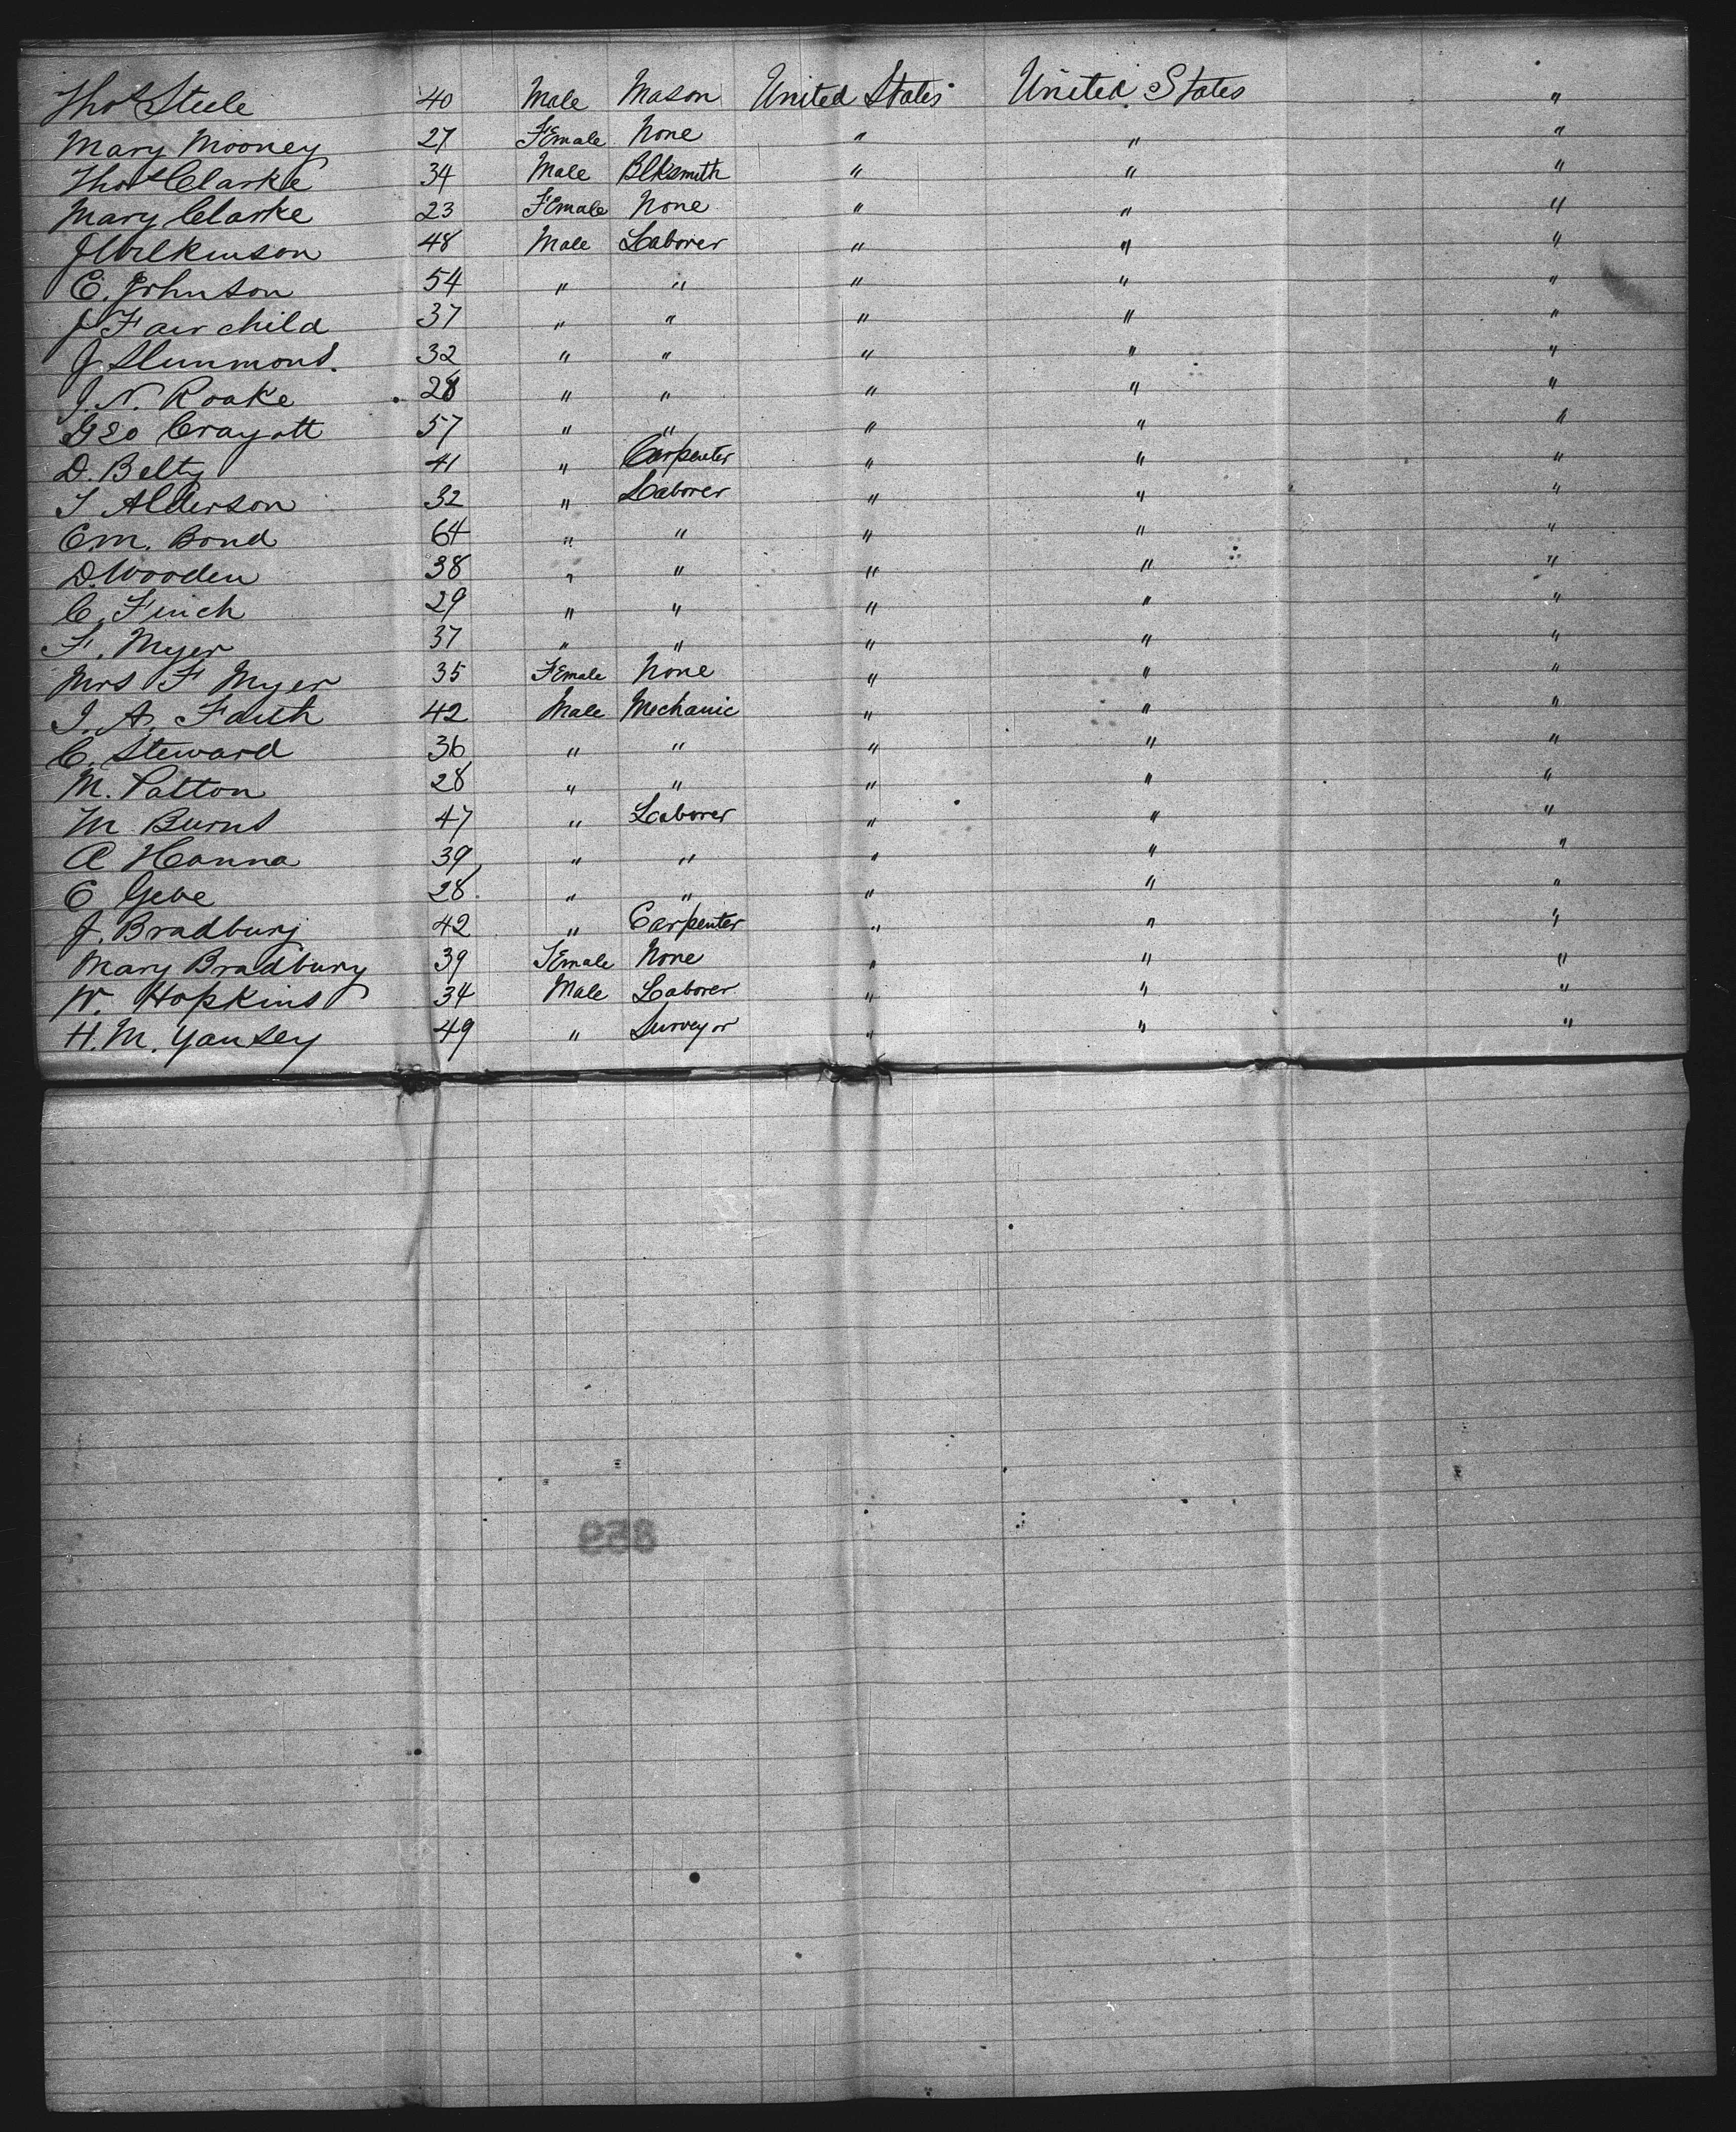 Thos Steele 40 Male Mason United States United States "
Mary Mooney 27 Female None " " "
Thos Clarke 34 Male Blksmith " " "
Mary Clarke 23 Female None " " "
J Wilkinson 48 Male Laborer " " "
E. Johnson 54 " " " " "
J Fairchild 37 " " " " "
J Slunmons. 32 " " " " "
J. N. Roake 28 " " " " "
Geo Crayott 57 " " " " "
D. Belty 41 " Carpenter " " "
T Alderson 32 " Laborer " " "
Em. Bond 64 " " " " "
D. Wooden 38 " " " " "
C. Finch 29 " " " " "
F. Myer 37 " " " " "
Mrs F Myer 35 Female None " " "
J. A. Faith 42 Male Mechanic " " "
C. Steward 36 " " " " "
M. Patton 28 " " " " "
M Burns 47 " Laborer " " "
A Hanna 39 " " " " "
C 28 " " " " "
J. Bradbury 42 " Carpenter " " "
Mary Bradbury 39 Female None " " "
W. Hopkins 34 Male Laborer " " "
H. M. Yansey 49 " Surveyor " " "